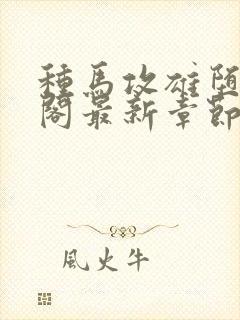 種馬攻雄堕
閣最新章節
風火牛